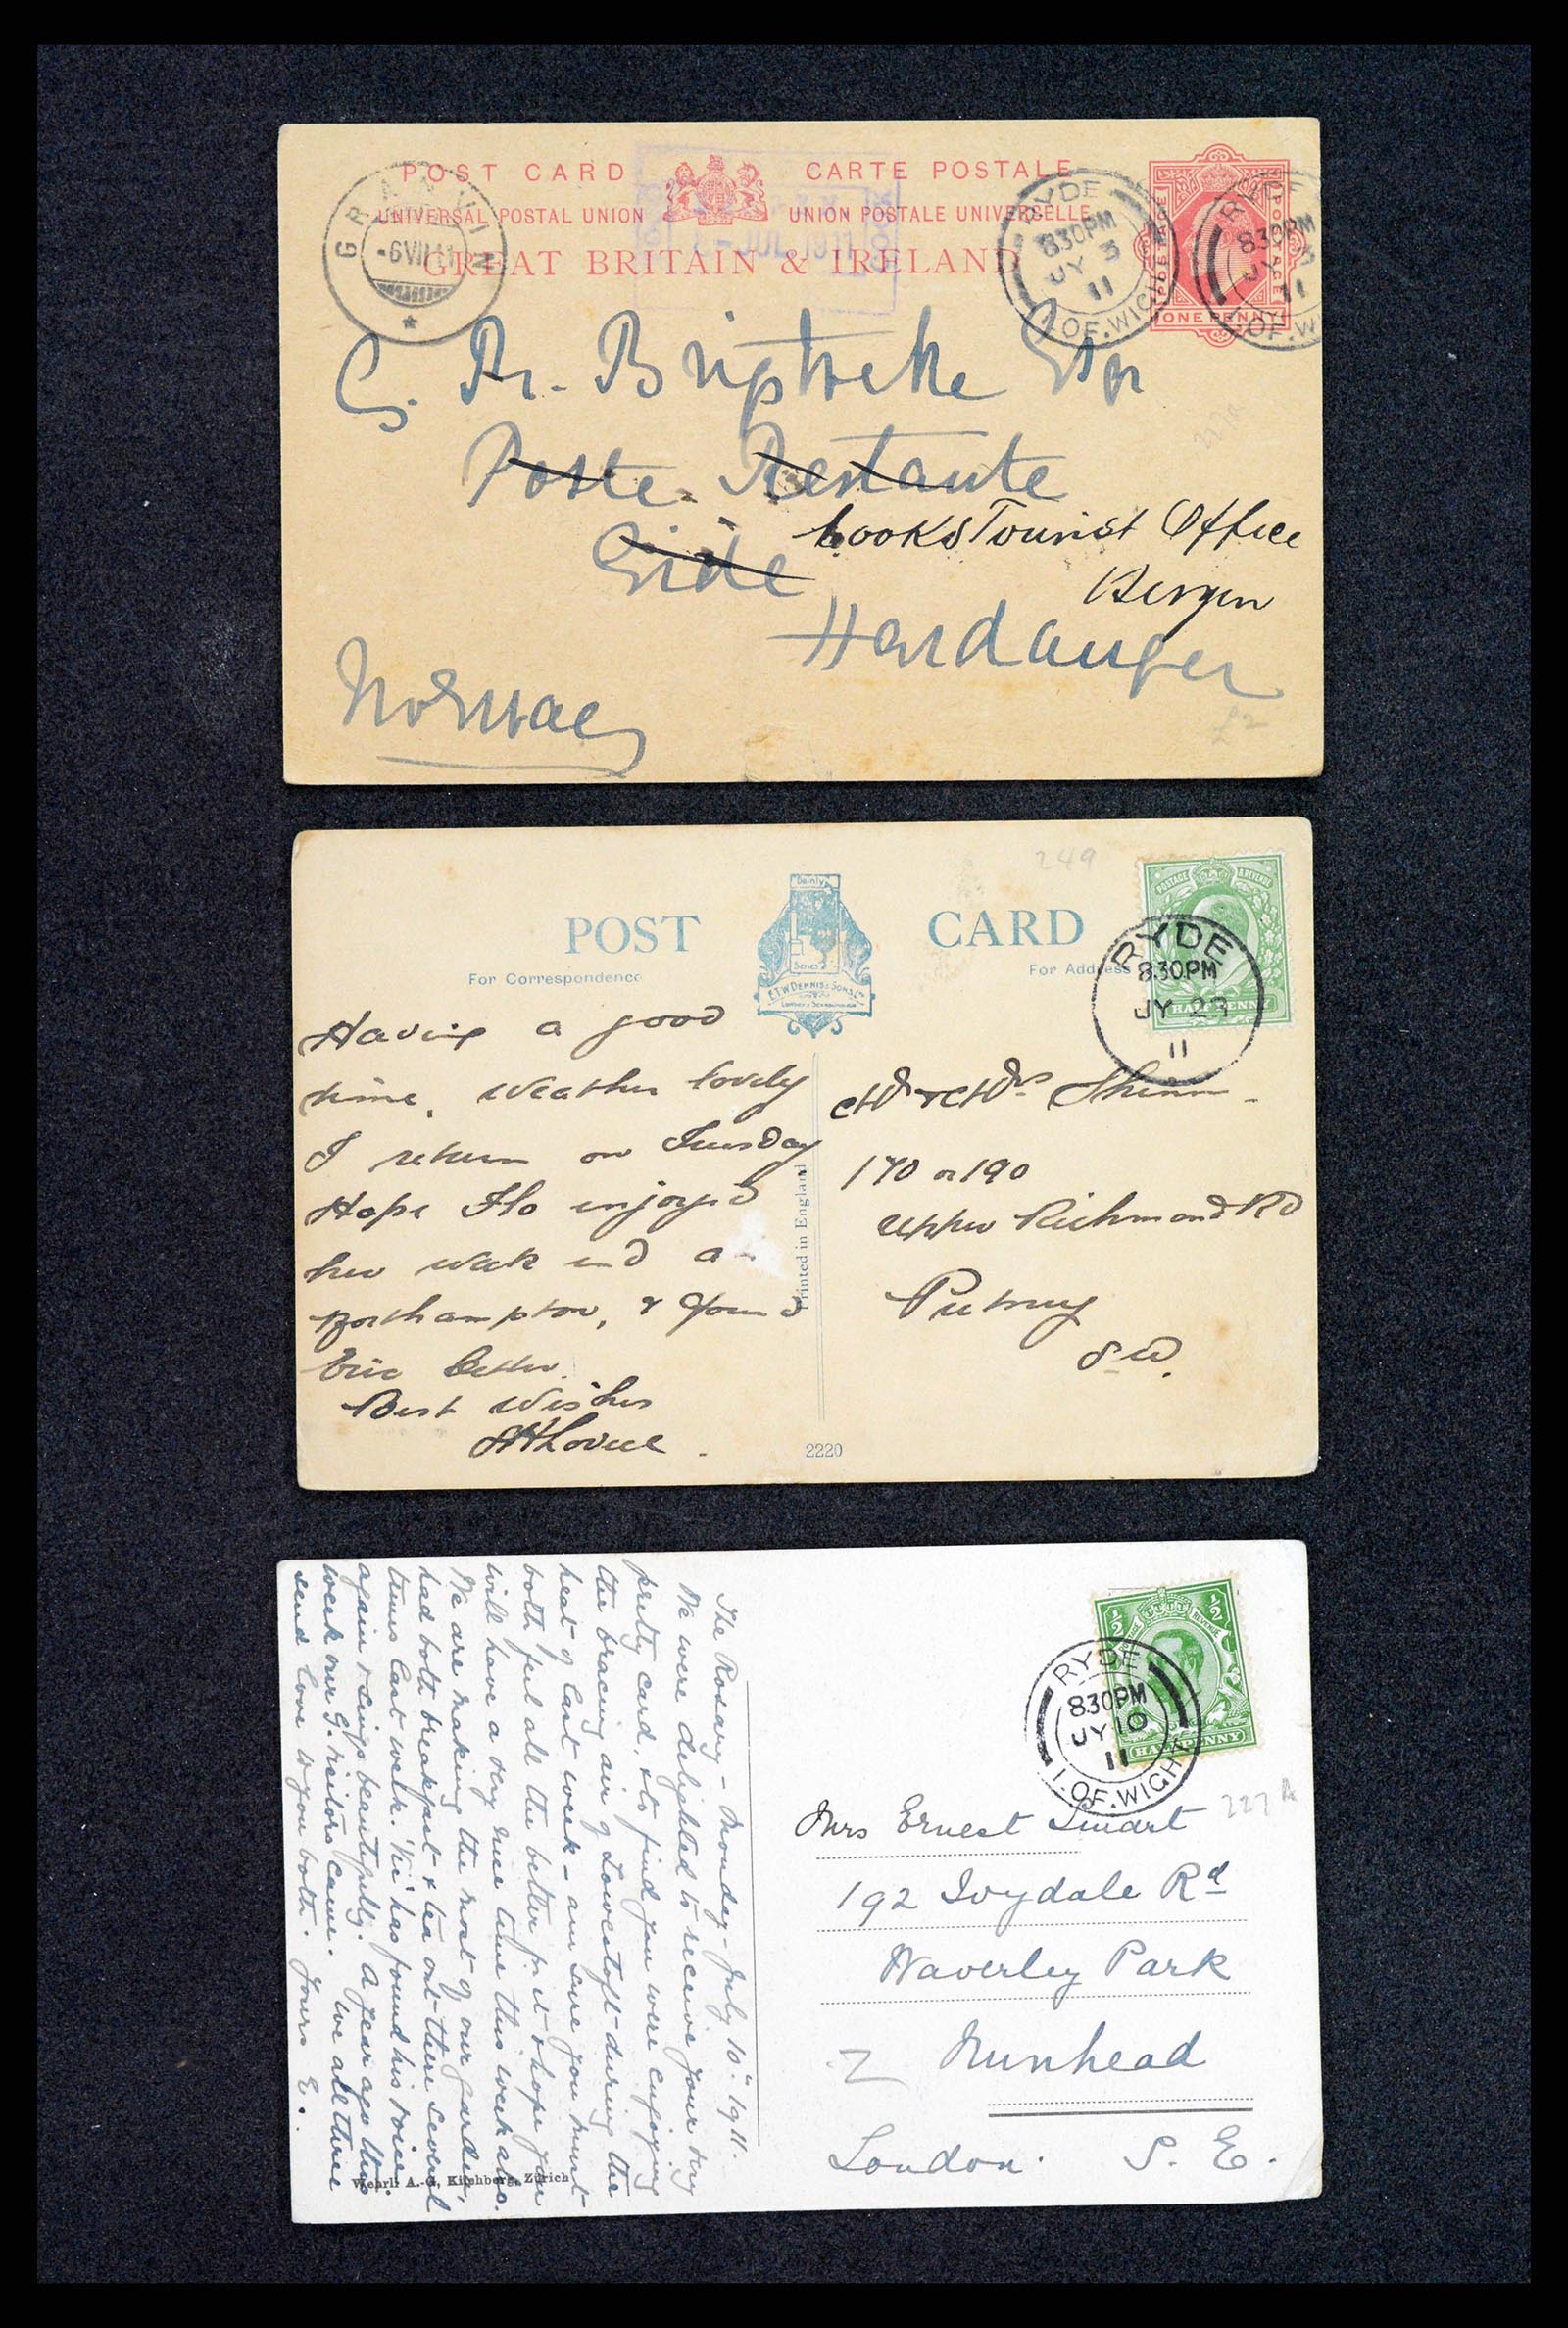 POST CARD CARTE POSTALE
UNIVERSAL POSTAL UNION UNION POSTALE UNIVERSELLE
GREAT BRITAIN & IRELAND
-6 VII 11
JUL 1911
RYDE
8.30PM
JY 3
11
I. OF. WIGHT
RYDE
8.30PM
JY 3
11
I. OF. W
POSTAGE
ONE PENNY
Esqr
Poste Restante
Cooks Tourist Office
Eide
Bergen
Hardanger
Norway
£2
249
POST CARD
For Correspondence
For Address
Dainty
Series
E.T.W. DENNIS & SONS LTD
LONDON & SCARBOROUGH
POSTAGE & REVENUE
HALF PENNY
RYDE
8.30PM
JY 23
11
Having a good
time, weather lovely
I return on Tuesday
Hope Flo enjoyed
her week end a
Northampton, & found
Eric better.
Best Wishes
Printed in England
2220
Mr & Mrs Shinn
170 or 190
Upper Richmond Rd
Putney
S.W.
The Rosary - Monday - July 10th 1911.
We were delighted to receive your very
pretty card, & to find you were enjoying
the bracing air of Lowestoft during the
heat of last week - am sure you must
both feel all the better for it & hope you
will have a very nice time this week also.
We are making the most of our garden,
had both breakfast & tea out there several
times last week. 'Vic' has found his voice
again & sings beautifully. A year ago this
week our G. visitors came. We all three
send love to you both. Yours E.
Wehrli A.-G., Kilchberg, Zürich
½ ½
HALFPENNY
RYDE
8.30PM
JY 10
11
I. OF. WIGHT
227A
Mrs Ernest Smart
192 Ivydale Rd
Waverley Park
Nunhead
London. S. E.